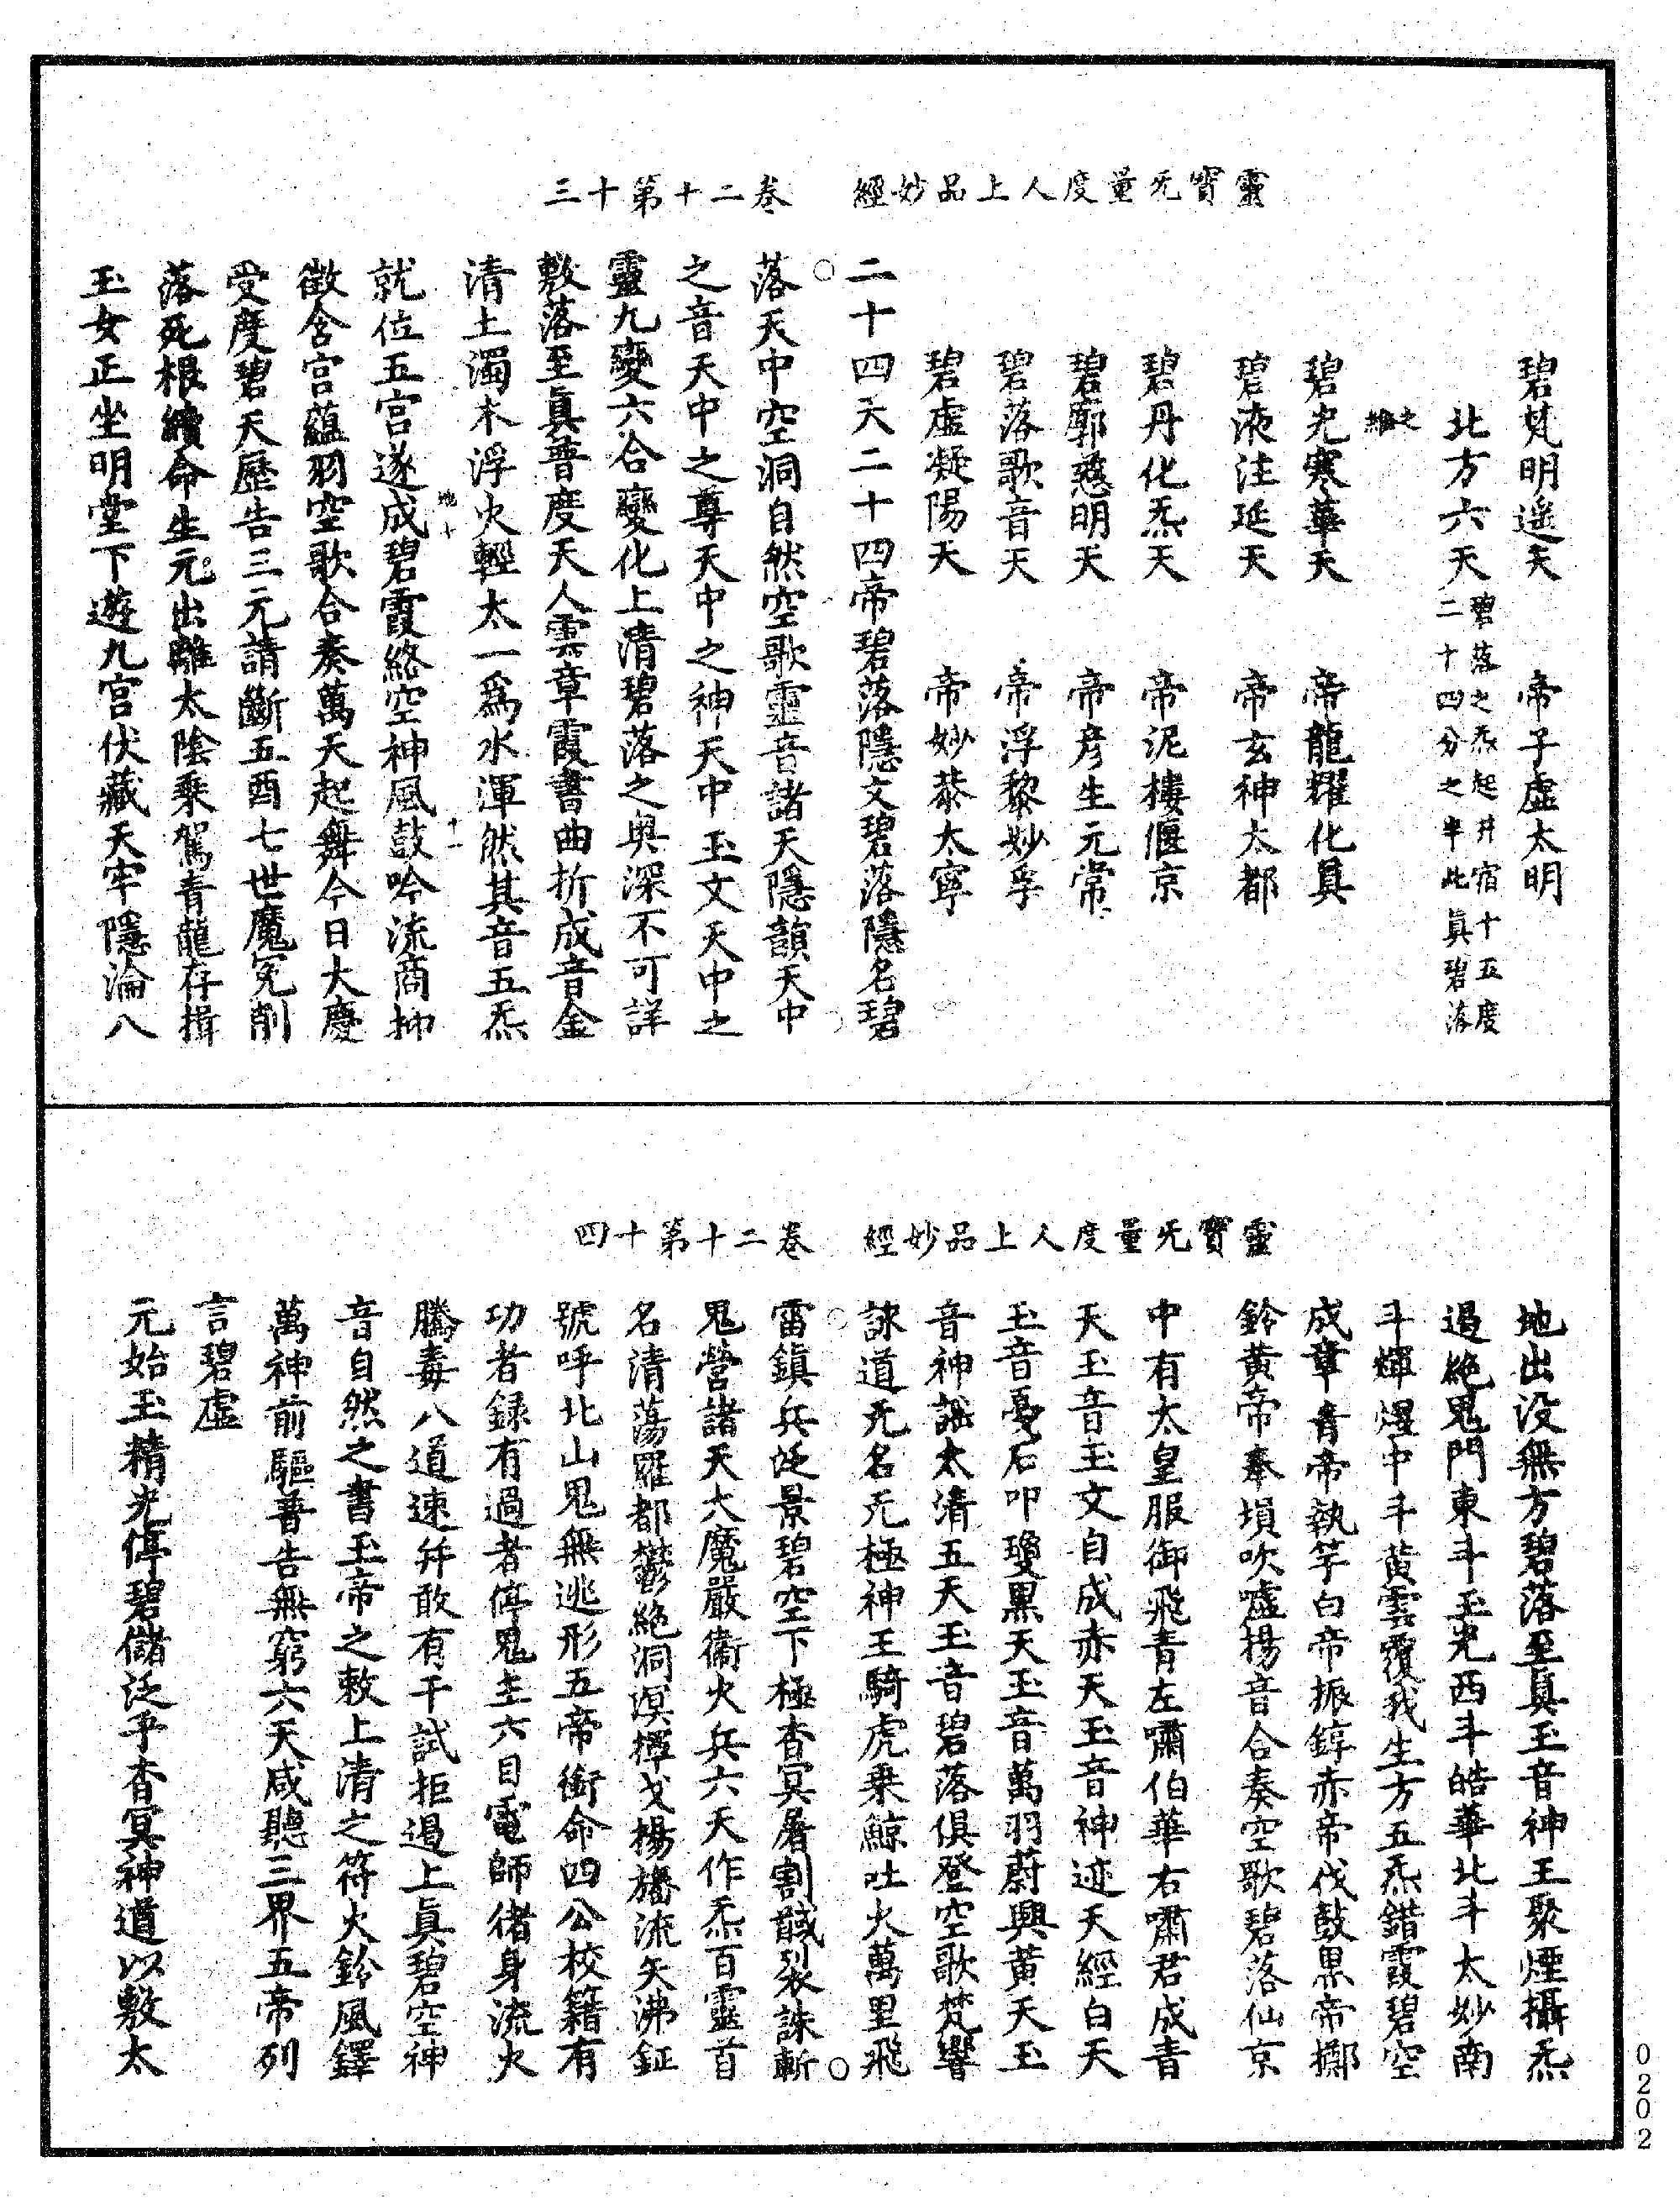 靈寶无量度人上品妙經　卷二十第十三
碧梵明遥天　帝子虛太明
北方六天碧落之炁起井宿十五度二十四分之半此眞碧落
之維
碧光寒華天　帝龍耀化眞
碧液注延天　帝玄神太都
碧丹化炁天　帝泥樓偃京
碧廓慈明天　帝彦生元常
碧落歌音天　帝浮黎妙孚
碧虛凝陽天　帝妙恭太寧
二十四天二十四帝碧落隱文碧落隱名碧
落天中空洞自然空歌靈音諸天隱韻天中
之音天中之尊天中之神天中玉文天中之
靈九變六合變化上清碧落之奥深不可詳
敷落至眞普度天人雲章霞書曲折成音金
清土濁木浮火輕太一爲水渾然其音五炁
就位五宫遂成碧霞絡空神風鼓吟流商抻
徵含宫蘊羽空歌合奏萬天起舞今日大慶
受度碧天歷告三元請斷五酉七世魔寃削
落死根續命生元出離太陰乘駕青龍存揖
玉女正坐明堂下遊九宫伏藏天牢隱淪八
靈寶无量度人上品妙經　卷二十第十四
地出没無方碧落至眞玉音神王聚煙攝炁
過絶鬼門東斗玉光西斗皓華北斗太妙南
斗輝煜中斗黄雲覆我生方五炁錯霞碧空
成章青帝執竽白帝振錞赤帝伐鼓黑帝擲
鈴黄帝奉塤吹嘘揚音合奏空歌碧落仙京
中有太皇服御飛青左嘯伯華右嘯君成青
天玉音玉文自成赤天玉音神迹天經白天
玉音憂石叩瓊黑天玉音萬羽蔚興黄天玉
音神謡太清五天玉音碧落俱登空歌梵響
詠道无名无極神王騎虎乘鯨吐火萬里飛
雷鎮兵泛景碧空下極杳冥屠割馘裂誅斬
鬼營諸天大魔嚴衞火兵六天作炁百靈首
名清蕩羅都鬱絶洞溟揮戈楊旛流矢沸鉦
號呼北山鬼無逃形五帝銜命四公校籍有
功者録有過者停鬼圭六目電師緒身流火
騰毒八道速幷敢有干試拒遏上眞碧空神
音自然之書玉帝之敕上清之符火鈴風鐸
萬神前驅普告無窮六天咸聽三界五帝列
言碧虛
元始玉精光停碧儲泛乎杳冥神道以敷太
0202